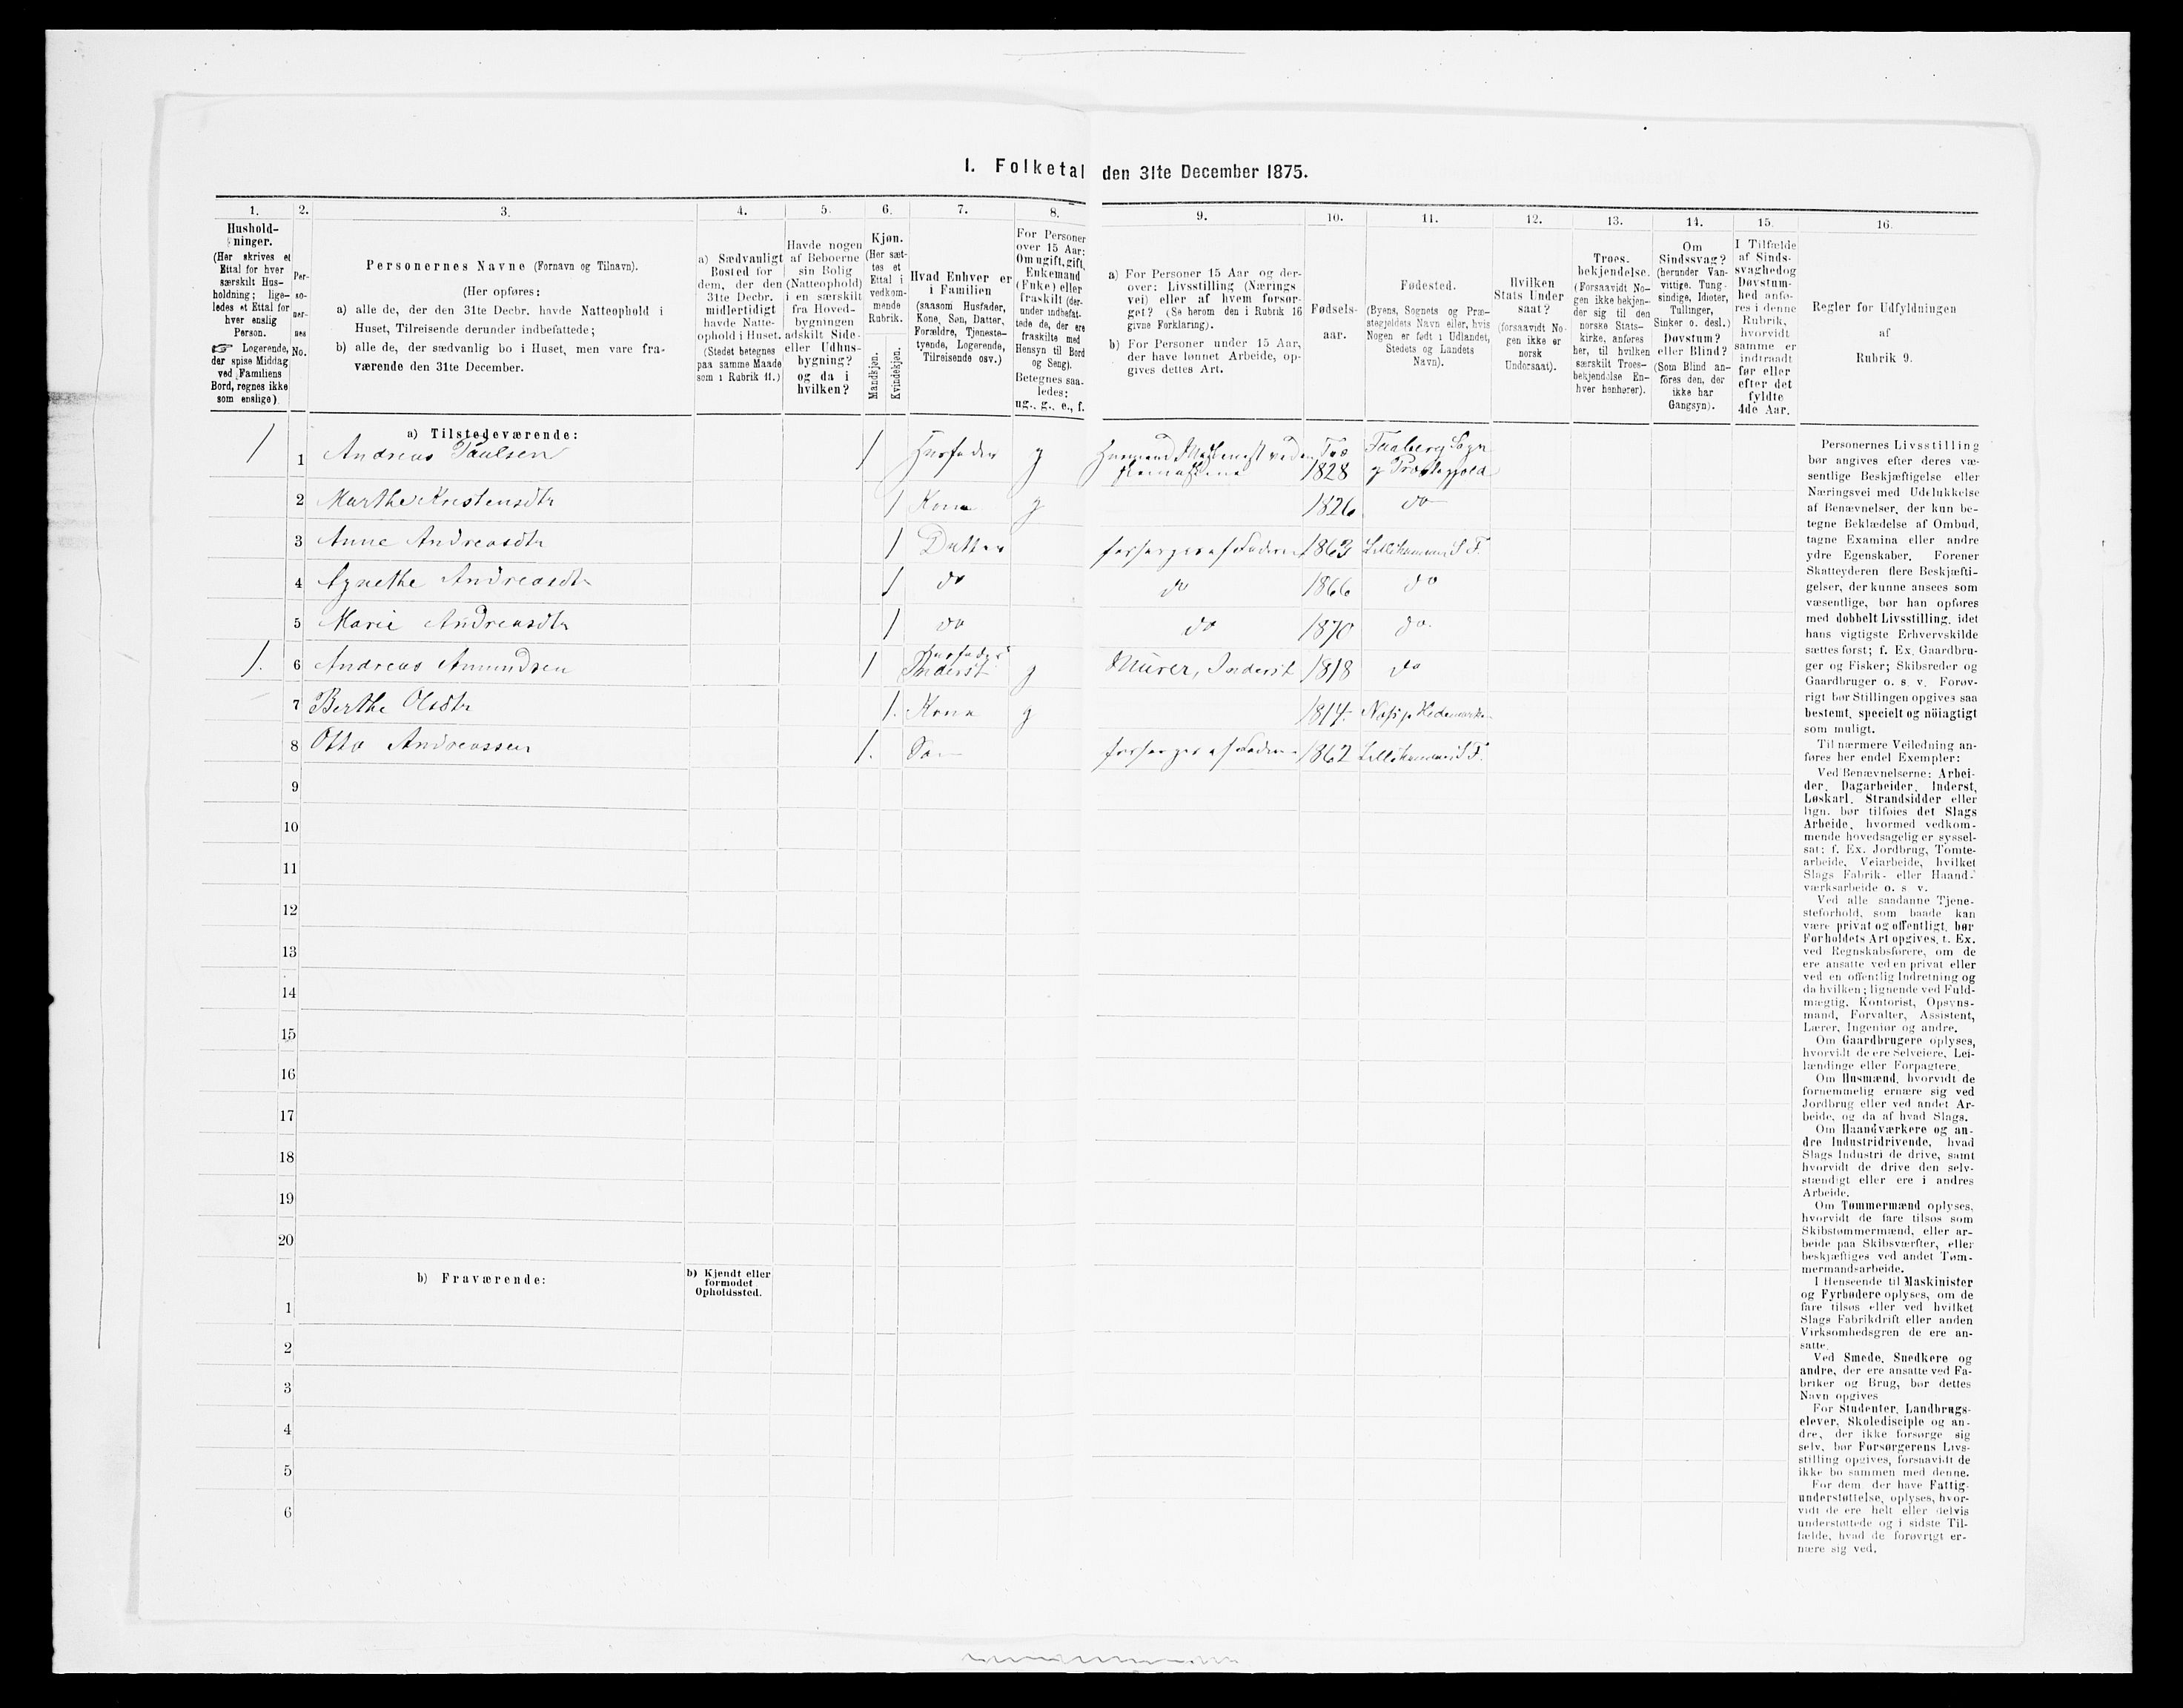 I. Folketal den 31te December 1875.
1. 2. 3. 4. 5. 6. 7. 8. 9. 10. 11. 12. 13. 14. 15. 16.
Hushold-
ninger.
(Her skrives et
Ettal for hver
særskilt Hus-
holdning; lige-
ledes et Ettal for
hver enslig
Person.
☞ Logerende,
der spise Middag
ved Familiens
Bord, regnes ikke
som enslige)
Per-
so-
ner-
nes
No.
Personernes Navne (Fornavn og Tilnavn).
(Her opføres:
a) alle de, der den 31te Decbr. havde Natteophold i
Huset, Tilreisende derunder indbefattede;
b) alle de, der sædvanlig bo i Huset, men vare fra-
værende den 31te December.
a) Sædvanligt
Bosted for
dem, der den
31te Decbr.
midlertidigt
havde Natte-
ophold i Huset.
(Stedet betegnes
paa samme Maade
som i Rubrik 11.)
Havde nogen
af Beboerne
sin Bolig
(Natteophold)
i en særskilt
fra Hoved-
bygningen
adskilt Side-
eller Udhus-
bygning?
og da i
hvilken?
Kjøn.
(Her sæt-
tes et
Ettal i
vedkom-
mende
Rubrik.
Mandkjøn.
Kvindekjøn.
Hvad Enhver er
i Familien
(saasom Husfader,
Kone, Søn, Datter,
Forældre, Tjeneste-
tyende, Logerende,
Tilreisende osv.)
For Personer
over 15 Aar:
Om ugift, gift,
Enkemand
(Enke) eller
fraskilt (der-
under indbefat-
tede de, der ere
fraskilte med
Hensyn til Bord
og Seng).
Betegnes saa-
ledes:
ug., g., e., f.
a) For Personer 15 Aar og der-
over: Livsstilling (Nærings
vei) eller af hvem forsør-
get? (Se herom den i Rubrik 16
givne Forklaring).
b) For Personer under 15 Aar,
der have lønnet Arbeide, op-
gives dettes Art.
Fødsels-
aar.
Fødested.
(Byens, Sognets og Præ-
stegjeldets Navn eller, hvis
Nogen er født i Udlandet,
Stedets og Landets
Navn).
Hvilken
Stats Under
saat?
(forsaavidt No-
gen ikke er
norsk
Undersaat).
Troes.
bekjendelse.
(Forsaavidt No-
gen ikke bekjen-
der sig til den
norske Stats-
kirke, anføres
her, til hvilken
særskilt Troes-
bekjendelse En-
hver henhører).
Om
Sindssvag?
(herunder Van-
vittige, Tung-
sindige, Idioter,
Tullinger,
Sinker o. desl.)
Døvstum?
eller Blind?
(Som Blind an-
føres den, der
ikke har
Gangsyn).
I Tilfælde
af Sinds-
svaghed og
Døvstum-
hed anfø-
res i denne
Rubrik,
hvorvidt
samme er
indtraadt
før eller
efter det
fyldte
4de Aar.
Regler for Udfyldningen
af
Rubrik 9.
a) Tilstedeværende:
1 1 Andreas Paulsen 1 Husfader g 1828 Faaberg Sogn
2 Marthe Kristensdtr 1 Kone g 1826 do
3 Anne Andreasdtr 1 Datter forsørges af Faderen 1863 Lillehammer S F.
4 Agnethe Andreasdtr 1 do do 1866 do
5 Marie Andreasdtr 1 do do 1870 do.
Husfader
1. 6 Andreas Amundsen 1 Inderst g Murer, Inderst 1818 do
7 Berthe Olsdtr 1. Kone g 1814.
8 Otto Andreassen 1. Søn forsørges af Faderen 1862 Lillehammer S F.
9
10
11
12
13
14
15
16
17
18
19
20
b) Fraværende:
b) Kjendt eller
formodet
Opholdssted.
1
2
3
4
5
6
Personernes Livsstilling
bør angives efter deres væ-
sentlige Beskjæftigelse eller
Næringsvei med Udelukkelse
af Benævnelser, der kun be-
tegne Beklædelse af Ombud,
tagne Examina eller andre
ydre Egenskaber. Forener
Skatteyderen flere Beskjæfti-
gelser, der kunne ansees som
væsentlige, bør han opføres
med dobbelt Livsstilling, idet
hans vigtigste Erhvervskilde
sættes først; f. Ex. Gaardbru-
ger og Fisker; Skibsreder og
Gaardbruger o. s. v. Forøv-
rigt bør Stillingen opgives saa
bestemt, specielt og nöiagtigt
som muligt.
Til nærmere Veiledning an-
føres her endel Exempler:
Ved Benævnelserne: Arbei-
der, Dagarbeider, Inderst,
Løskarl, Strandsidder eller
lign. bør tilføies det Slags
Arbeide, hvormed vedkom-
mende hovedsagelig er syssel-
sat; f. Ex. Jordbrug, Tomte-
arbeide, Veiarbeide, hvilket
Slags Fabrik- eller Haand-
værksarbeide o. s v.
Ved alle saadanne Tjene-
steforhold, som baade kan
være privat og offentligt, bør
Forholdets Art opgives, t. Ex.
ved Regnskabsførere, om de
ere ansatte ved en privat eller
ved en offentlig Indretning og
da hvilken; lignende ved Fuld-
mægtig, Kontorist, Opsyns-
mand, Forvalter, Assistent,
Lærer, Ingeniør og andre.
Om Gaardbrugere oplyses,
hvorvidt de ere Selveiere, Lei-
lændinge eller Forpagtere.
Om Husmænd, hvorvidt de
fornemmelig ernære sig ved
Jordbrug eller ved andet Ar-
beide, og da af hvad Slags.
Om Haandværkere og an-
dre Industridrivende, hvad
Slags Industri de drive, samt
hvorvidt de drive den selv-
stændigt eller ere i andres
Arbeide.
Om Tømmermænd oplyses,
hvorvidt de fare tilsøs som
Skibstømmermænd, eller ar-
beide paa Skibsværfter, eller
beskjæftiges ved andet Tøm-
mermandsarbeide.
I Henseende til Maskinister
og Fyrbødere oplyses, om de
fare tilsøs eller ved hvilket
Slags Fabrikdrift eller anden
Virksomhedsgren de ere an-
satte.
Ved Smede, Snedkere og
andre, der ere ansatte ved Fa-
briker og Brug, bør dettes
Navn opgives
For Studenter, Landbrugs-
elever, Skoledisciple og an-
dre, der ikke forsørge sig
selv, bør Forsørgerens Livs-
stilling opgives, forsaavidt de
ikke bo sammen med denne.
For dem der have Fattig-
understøttelse, oplyses, hvor-
vidt de ere helt eller delvis
understøttede og i sidste Til-
fælde, hvad de forøvrigt er-
nære sig ved.